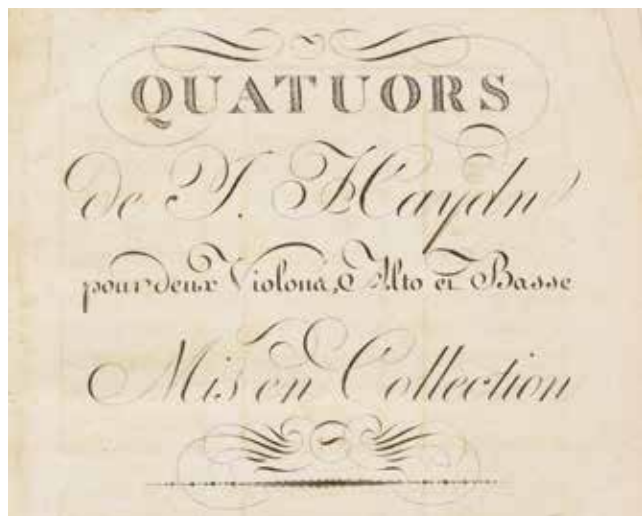 QUATUORS
de J. Haydn
pour deux Violons, Alto et Basse
Mis en Collection